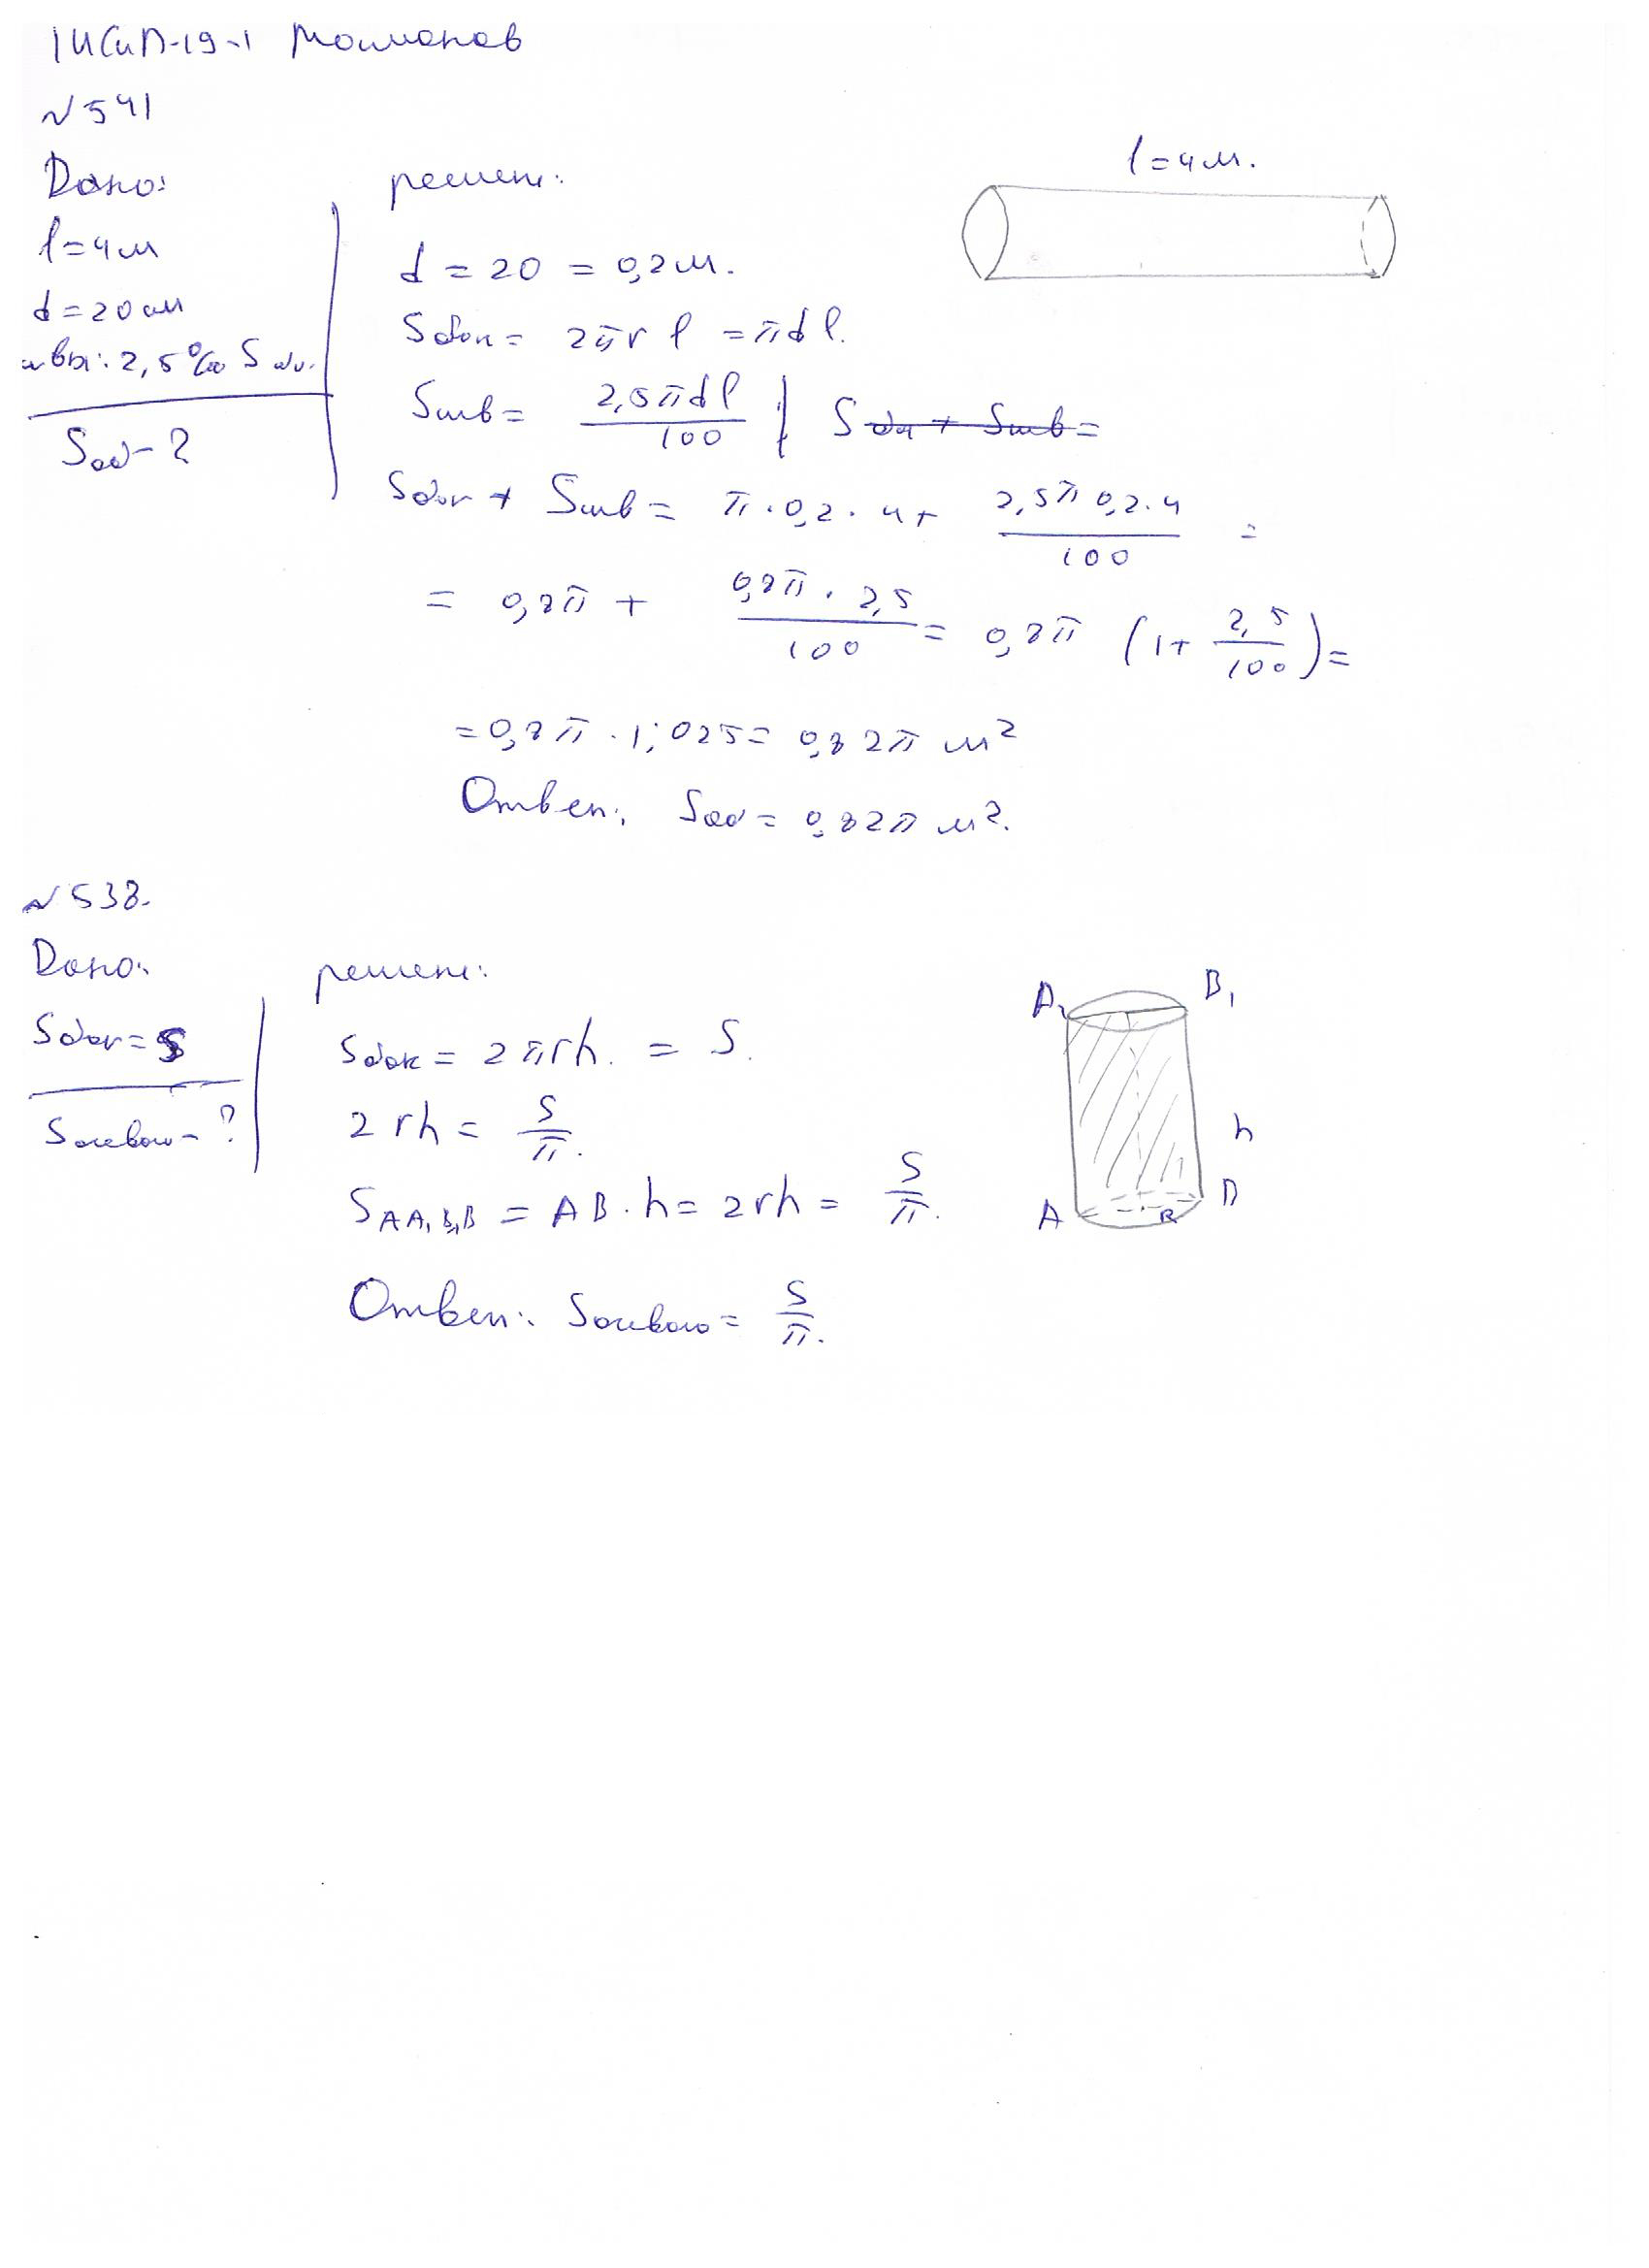 1ИСиП-19-1
№541
Дано:
l=4м
d=20см
швы: 2,5% Sбок.
Sоб-?
решен:
l=4м.
d = 20 = 0,2м.
Sбок = 2πr l = πdl.
Sшв = 2,5πdl/100 | Sбок + Sшв =
Sбок + Sшв = π·0,2·4+ 2,5π0,2·4/100 =
= 0,8π + 0,8π·2,5/100 = 0,8π (1+ 2,5/100)=
=0,8π·1,025= 0,82π м²
Ответ: Sоб = 0,82π м².
№538.
Дано:
Sбок=S
-?
решен:
Sбок = 2πrh. = S.
2rh = S/π.
SAA₁B₁B = AB·h= 2rh = S/π.
Ответ: = S/π.
A₁
B₁
h
A
R
D